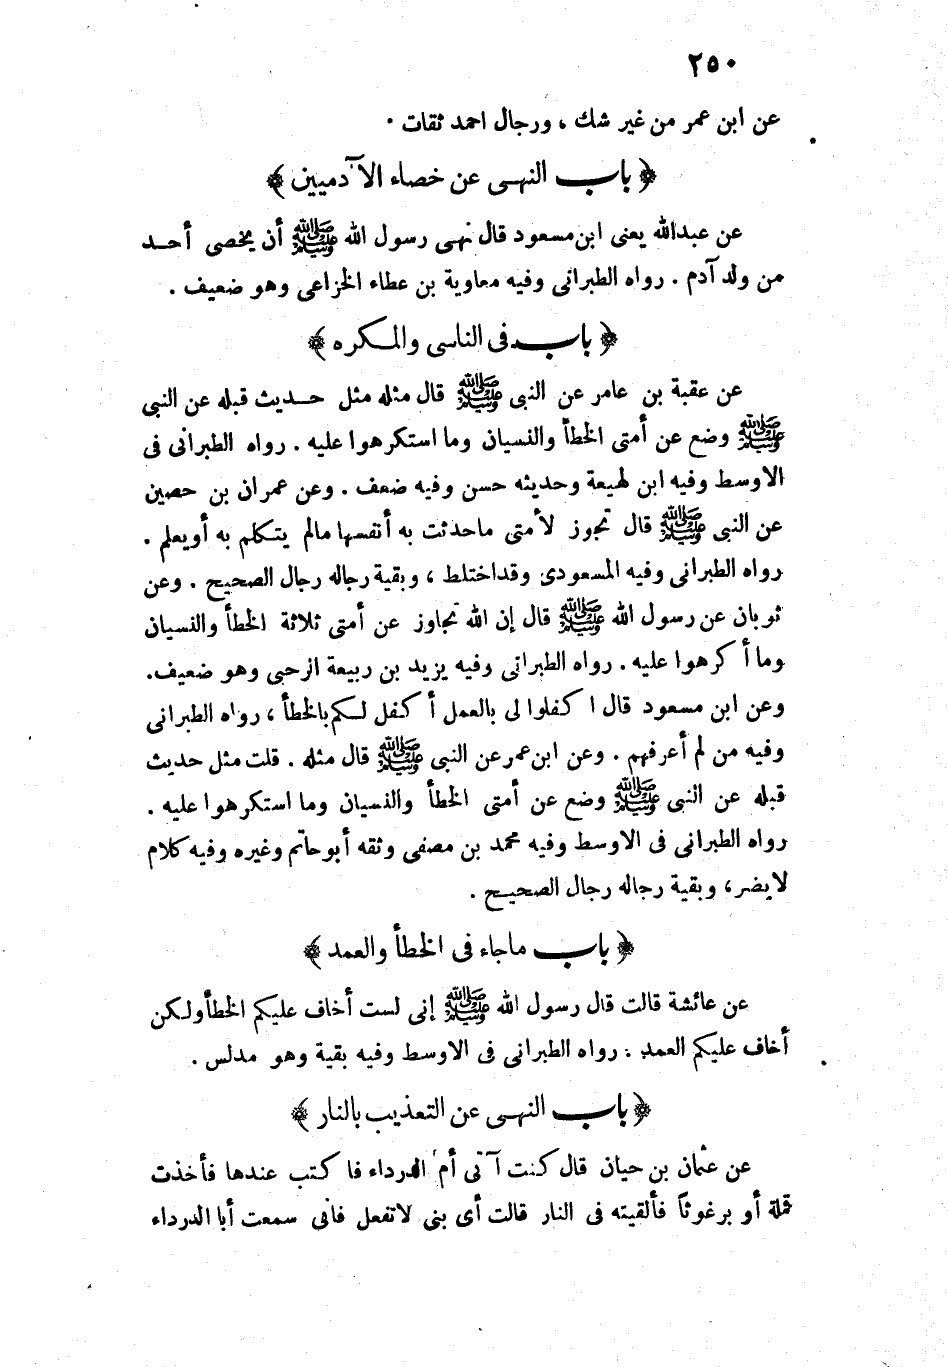 ٢٥٠
عن ابن عمر من غير شك ، ورجال احمد ثقات .
﴿ باب النهى عن خصاء الآدميين ﴾
عن عبدالله يعنى ابن مسعود قال نهى رسول الله ﷺ أن يخصى أحد
من ولد آدم . رواه الطبرانى وفيه معاوية بن عطاء الخزاعى وهو ضعيف .
﴿ باب فى الناسى والمكره ﴾
عن عقبة بن عامر عن النبى ﷺ قال مثله مثل حديث قبله عن النبى
ﷺ وضع عن أمتى الخطأ والنسيان وما استكرهوا عليه . رواه الطبرانى فى
الاوسط وفيه ابن لهيعة وحديثه حسن وفيه ضعف . وعن عمران بن حصين
عن النبى ﷺ قال تجوز لأمتى ماحدثت به أنفسها مالم يتكلم به أويعلم .
رواه الطبرانى وفيه المسعودى وقداختلط ، وبقية رجاله رجال الصحيح . وعن
ثوبان عن رسول الله ﷺ قال إن الله تجاوز عن أمتى ثلاثة الخطأ والنسيان
وما أكرهوا عليه . رواه الطبرانى وفيه يزيد بن ربيعة الرحبى وهو ضعيف.
وعن ابن مسعود قال اكفلوا لى بالعمل أكفل لكم بالخطأ ، رواه الطبرانى
وفيه من لم أعرفهم . وعن ابن عمر عن النبى ﷺ قال مثله . قلت مثل حديث
قبله عن النبى ﷺ وضع عن أمتى الخطأ والنسيان وما استكرهوا عليه .
رواه الطبرانى فى الاوسط وفيه محمد بن مصفى وثقه أبوحاتم وغيره وفيه كلام
لايضر ، وبقية رجاله رجال الصحيح .
﴿ باب ماجاء فى الخطأ والعمد ﴾
عن عائشة قالت قال رسول الله ﷺ إنى لست أخاف عليكم الخطأ ولكن
أخاف عليكم العمد . رواه الطبرانى فى الاوسط وفيه بقية وهو مدلس .
﴿ باب النهى عن التعذيب بالنار ﴾
عن عثمان بن حيان قال كنت آتى أم الدرداء فاكتب عندها فأخذت
قملة أو برغوثاً فألقيته فى النار قالت أى بنى لاتفعل فانى سمعت أبا الدرداء